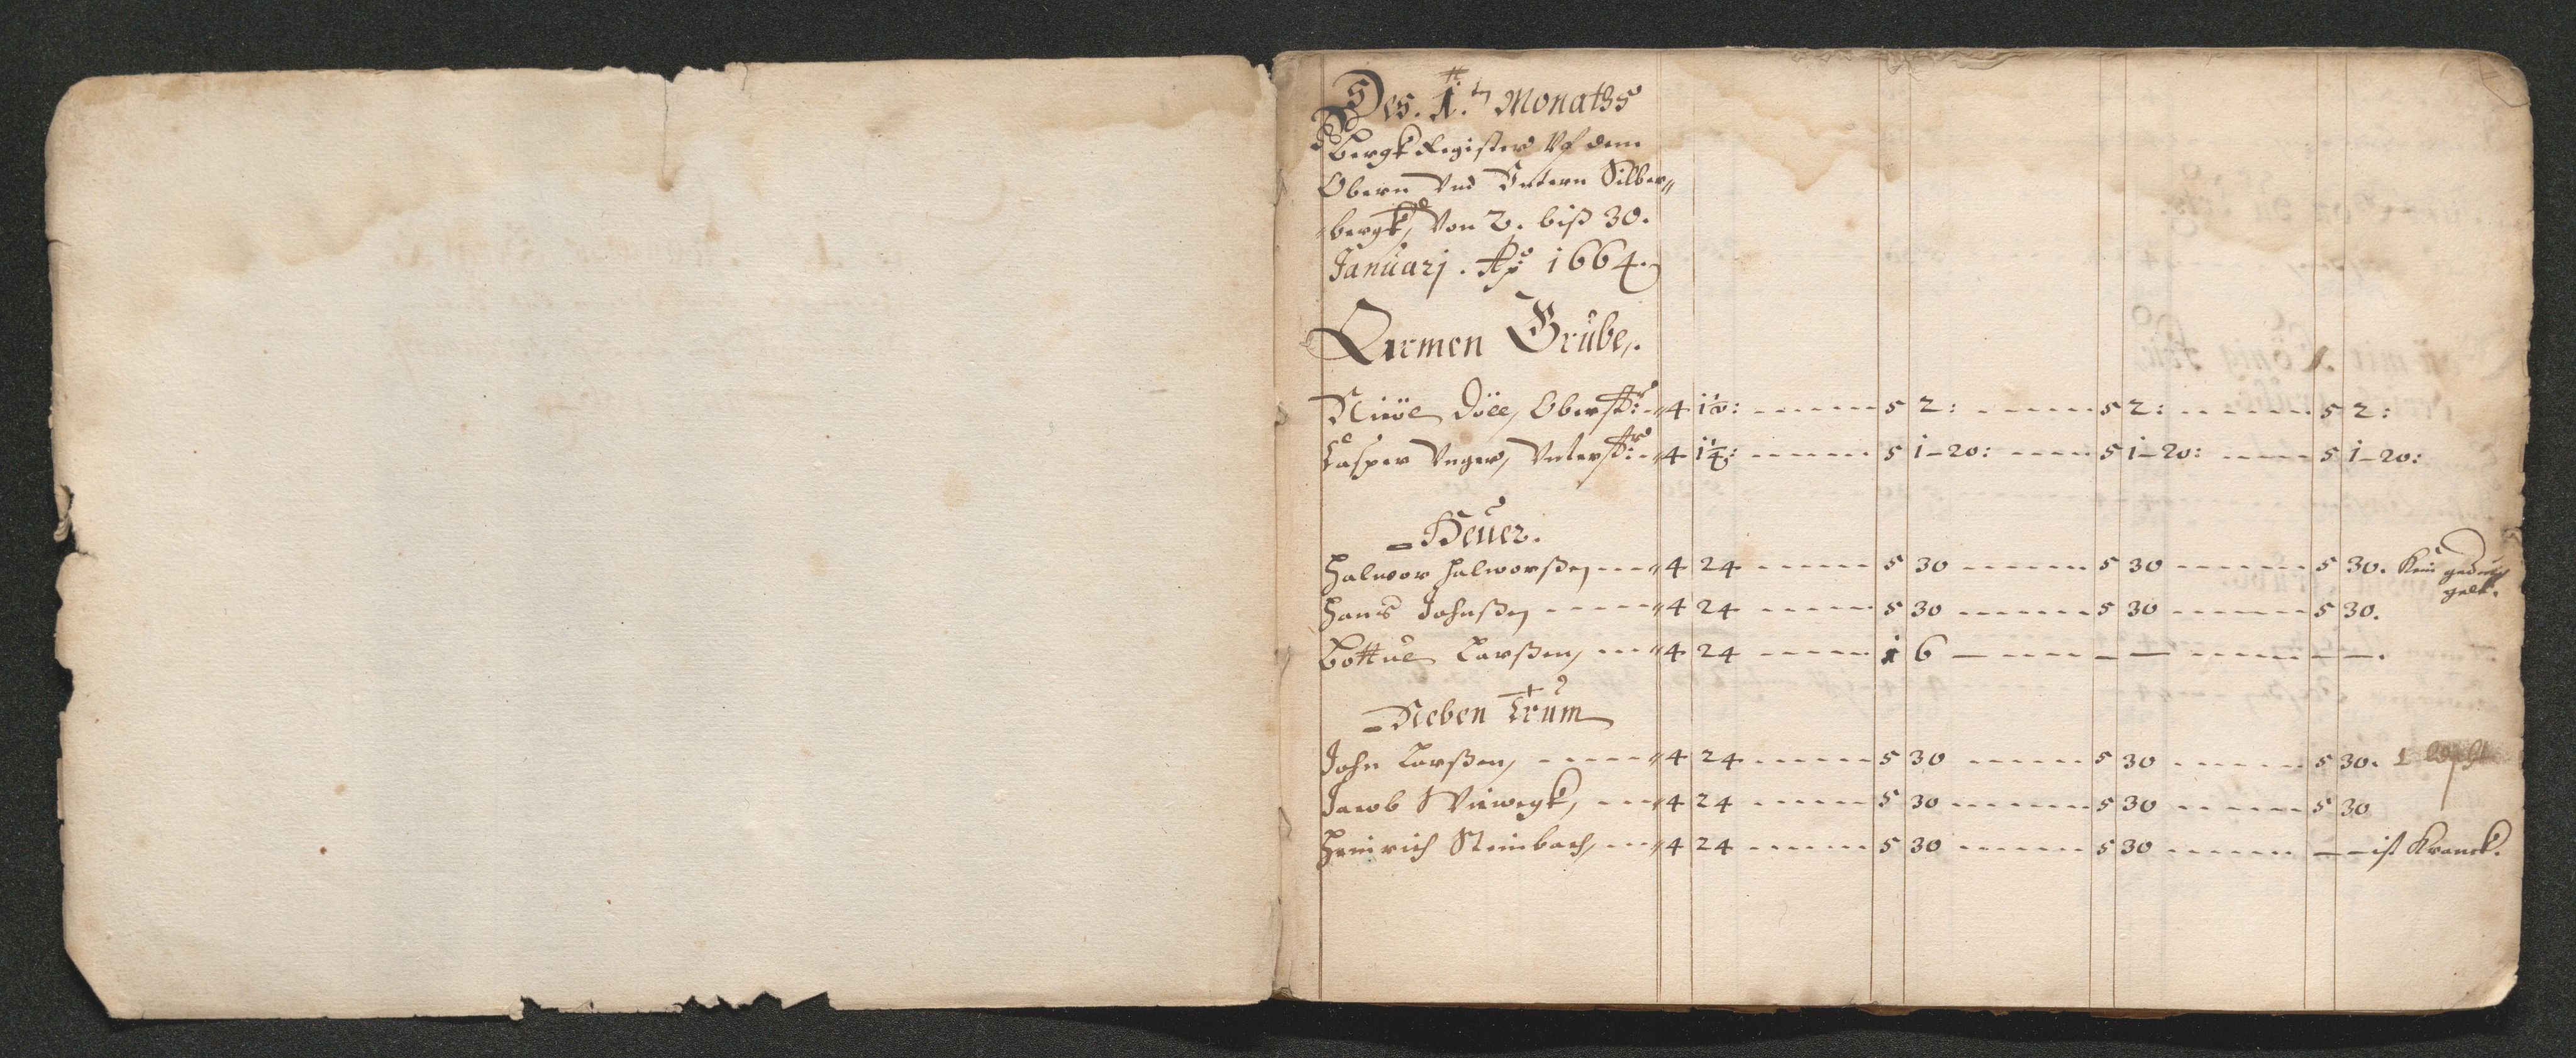 Des. 1.ten Monaths
Bergk Register Vf dem
Obern Vnd Vntern Silber„
bergk, Von 2. biß 30.
Januarj. Aō 1664.
Armen Grube,.
Oberst: „ 4 1½: 5 2: 5 2: 5 2:
Casper Vnger, Vnterst: „ 4 1¼: 5 1-20: 5 1-20: 5 1-20:
Heuer.
Halvor Halvorßen „ 4 24 5 30 5 30 5 30. Kein geding
gelt.
Hans Johnßen „ 4 24 5 30 5 30 5 30.
Larßen, „ 4 24 1 6 — — — —.
Neben Trum
John Larßen, „ 4 24 5 30 5 30 5 30. 1
Jacob Viewegk, „ 4 24 5 30 5 30 5 30
Heinrich Steinbach, „ 4 24 5 30 5 30 — — ist Kranck.